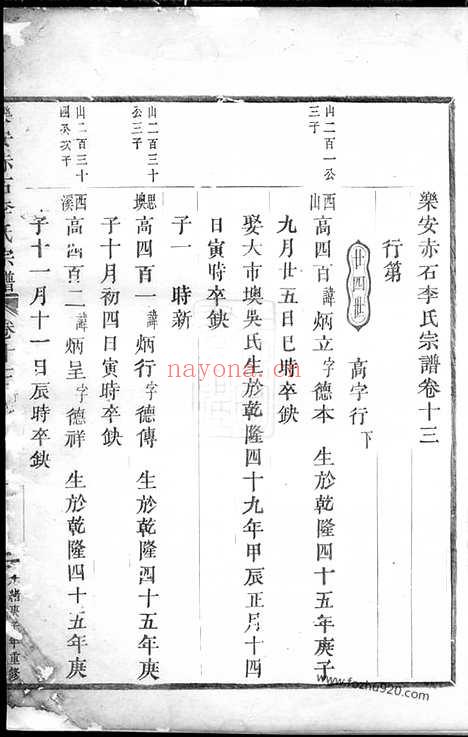 樂安赤石李氏宗譜卷十三
行第
廿四世 高字行下
山二百一公三子
西山 高四百 諱炳立字德本 生於乾隆四十五年庚子
九月廿五日巳時卒缺
娶大市墺吳氏生於乾隆四十九年甲辰正月十四
日寅時卒缺
子一 時新
山二百三十公三子
思墺 高四百一 諱炳行字德傳 生於乾隆四十五年庚
子十月初四日寅時卒缺
山二百三十
西溪 高四百二 諱炳呈字德祥 生於乾隆四十五年庚
子十一月十一日辰時卒缺
樂安赤石李氏宗譜
年重修
nayona.cn
www.fozhu920.com